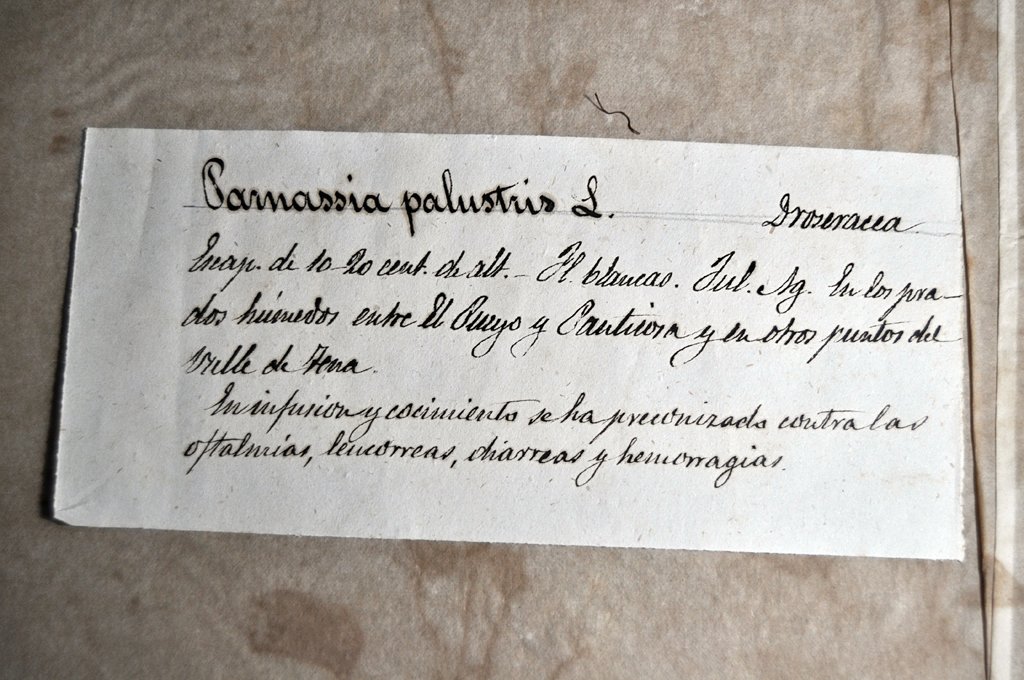 Parnassia palustris L. Droseracea
Escap. de 10-20 cent. de alt. - Fl. blancas. Jul. Ag. En los pra-
dos húmedos entre El Pueyo y Panticosa y en otros puntos del
Valle de Tena.
En infusion y cocimiento se ha preconizado contra las
oftalmias, leucorreas, diarreas y hemorragias.